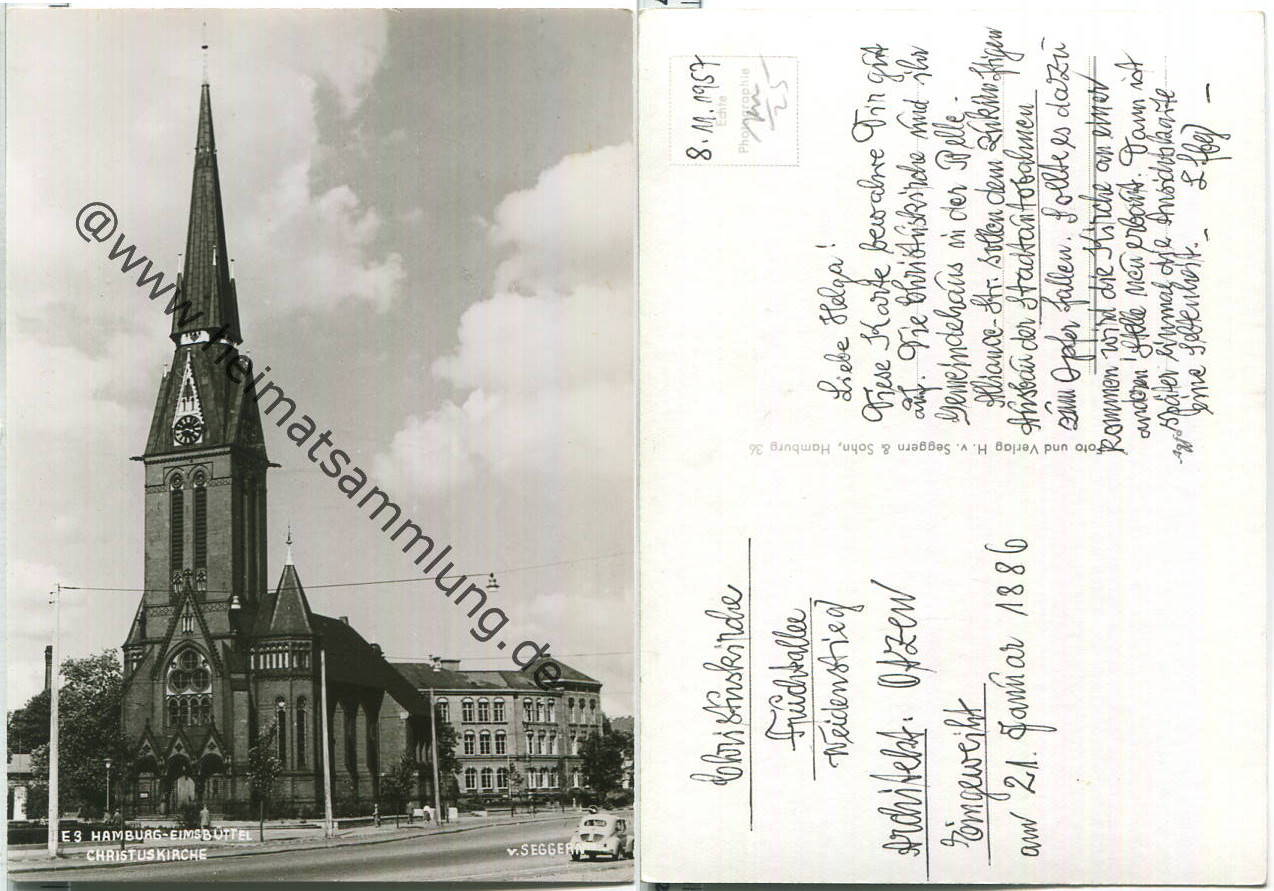 @www.heimatsammlung.de
E3 HAMBURG-EIMSBÜTTEL
CHRISTUSKIRCHE
v. SEGGERN
8.11.1957
Echte
Photographie
25
Liebe Helga!
Diese Karte bewahre Dir gut
auf. Die Christuskirche und ihr
Gemeindehaus in der Belle-
Alliance-Str. sollen dem zukünftigen
Ausbau der Stadtautobahnen
zum Opfer fallen. Sollte es dazu
kommen wird die Kirche an einer
anderen Stelle neu erbaut. Dann ist
später einmal die Ansichtskarte
eine Seltenheit. -
Foto und Verlag H. v. Seggern & Sohn, Hamburg 36
Christuskirche
Fruchtallee
Weidenstieg
Architekt: Otzen
Eingeweiht
am 21. Januar 1886